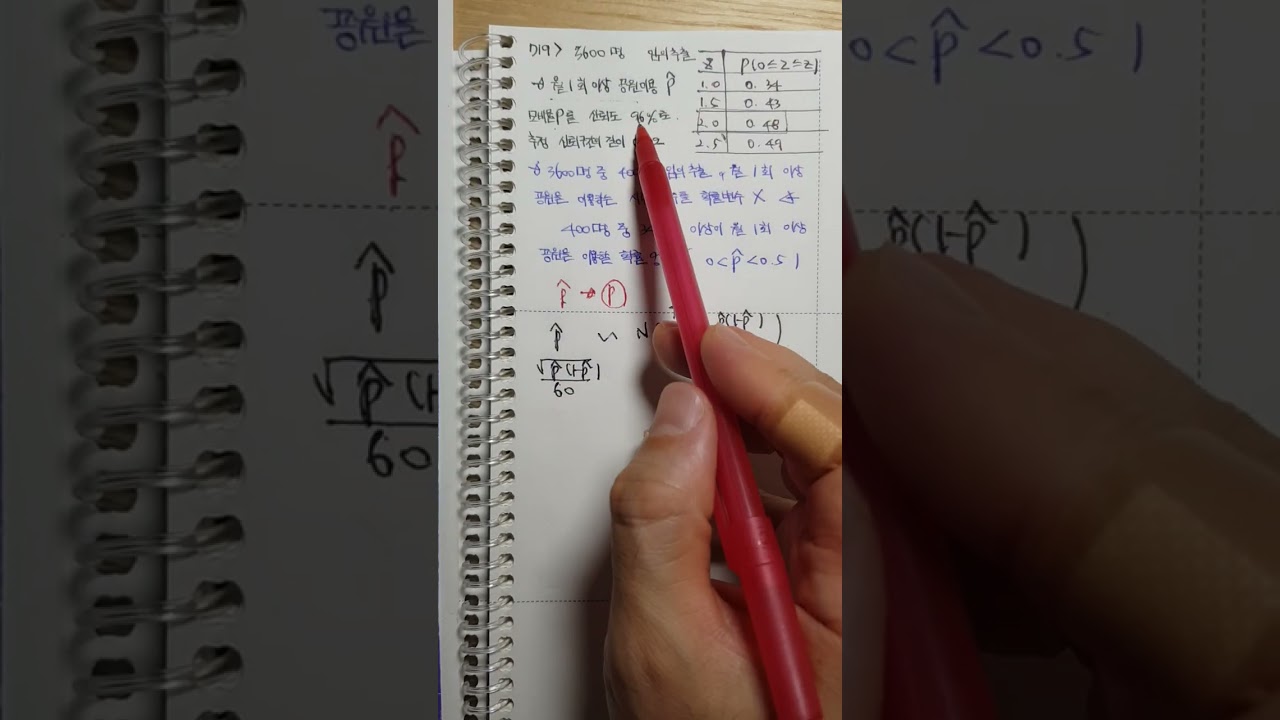 719> 3600명 임의추출
중 월 1회 이상 공원이용 p̂
모비율 P를 신뢰도 96%로
추정 신뢰구간의 길이
z P(0≤Z≤z)
1.0 0.34
1.5 0.43
2.0 0.48
2.5 0.49
중 3600명 중 임의추출, 월 1회 이상
공원을 이용하는 확률변수 X
400명 중 이상이 월 1회 이상
공원을 이용할 확률 0<p̂<0.5
p̂ → p
p̂ ∽ N p̂(1-p̂) )
√p̂(1-p̂)
60